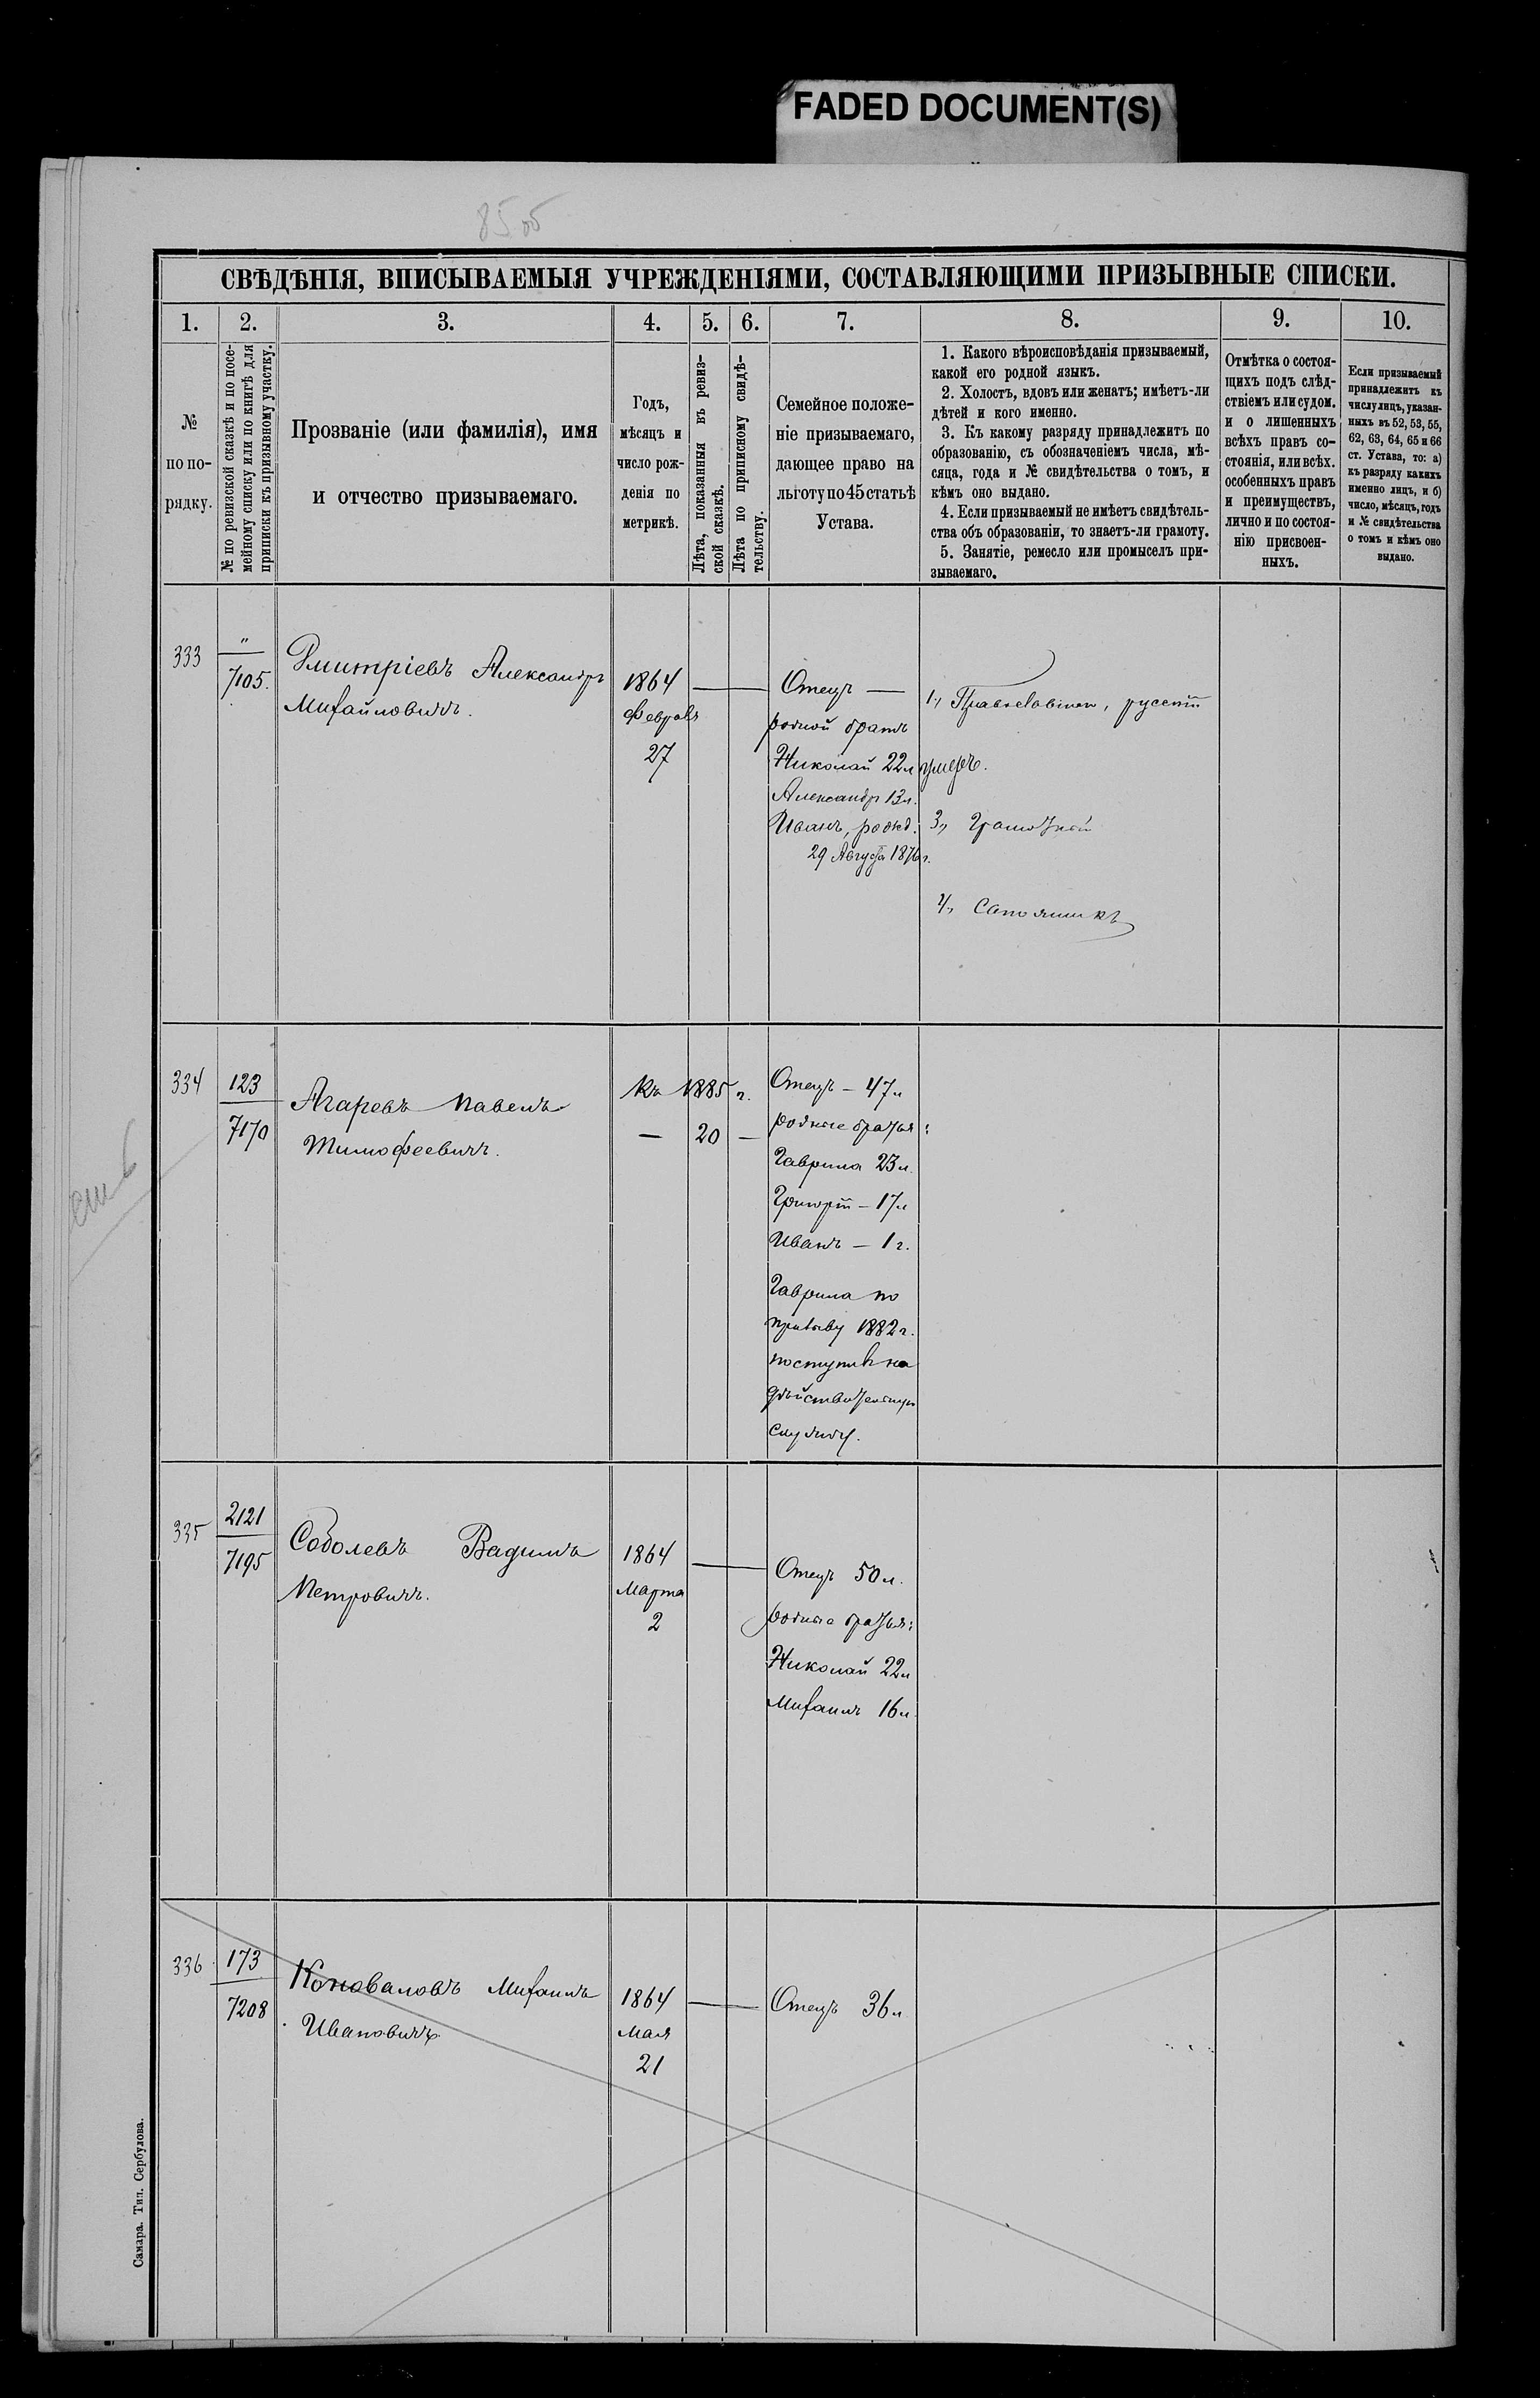 FADED DOCUMENT(S)
85об
СВѢДѢНІЯ, ВПИСЫВАЕМЫЯ УЧРЕЖДЕНІЯМИ, СОСТАВЛЯЮЩИМИ ПРИЗЫВНЫЕ СПИСКИ.
1. 2. 3. 4. 5. 6. 7. 8. 9. 10.
№
по по-
рядку.
№ по ревизской сказкѣ и по посе-
мейному списку или по книгѣ для
приписки къ призывному участку.
Прозваніе (или фамилія), имя
и отчество призываемаго.
Годъ,
мѣсяцъ и
число рож-
денія по
метрикѣ.
Лѣта, показанныя въ ревиз-
ской сказкѣ.
Лѣта по приписному свидѣ-
тельству.
Семейное положе-
ніе призываемаго,
дающее право на
льготу по 45 статьѣ
Устава.
1. Какого вѣроисповѣданія призываемый,
какой его родной языкъ.
2. Холостъ, вдовъ или женатъ; имѣетъ-ли
дѣтей и кого именно.
3. Къ какому разряду принадлежитъ по
образованію, съ обозначеніемъ числа, мѣ-
сяца, года и № свидѣтельства о томъ, и
кѣмъ оно выдано.
4. Если призываемый не имѣетъ свидѣтель-
ства объ образованіи, то знаетъ-ли грамоту.
5. Занятіе, ремесло или промыселъ при-
зываемаго.
Отмѣтка о состоя-
щихъ подъ слѣд-
ствіемъ или судом.
и о лишенныхъ
всѣхъ правъ со-
стоянія, или всѣх.
особенныхъ правъ
и преимуществъ,
лично и по состоя-
нію присвоен-
ныхъ.
Если призываемый
принадлежитъ къ
числу лицъ, указан-
ныхъ въ 52, 53, 55,
62, 63, 64, 65 и 66
ст. Устава, то: а)
къ разряду какихъ
именно лицъ, и б)
число, мѣсяцъ, годъ
и № свидѣтельства
о томъ и кѣмъ оно
выдано.
333
"
7105.
Дмитріевъ Александръ
Михайловичъ.
1864
Февраля
27
Отецъ —
родной братъ
Николай 22 л умеръ.
Александръ 13 л.
Иванъ, рожд.
29 Августа 1876 г.
1, Православнаго, русскій
3, Грамотный
4, Сапожникъ
334
123
7170
Агаревъ Павелъ
Тимофеевичъ.
Къ 1885 г.
— 20 —
Отецъ — 47 л
родные братья:
Гаврила 23 л.
Григорій — 17 л
Иванъ — 1 г.
Гаврила по
призыву 1882 г.
поступилъ на
дѣйствительную
службу.
335
2121
7195
Соболевъ Вадимъ
Петровичъ.
1864
Марта
2
Отецъ 50 л.
родные братья:
Николай 22 л
Михаилъ 16 л.
336
173
7208
Коноваловъ Михаилъ
Ивановичъ
1864
Мая
21
Отецъ 36 л
Самара. Тип. Сербулова.